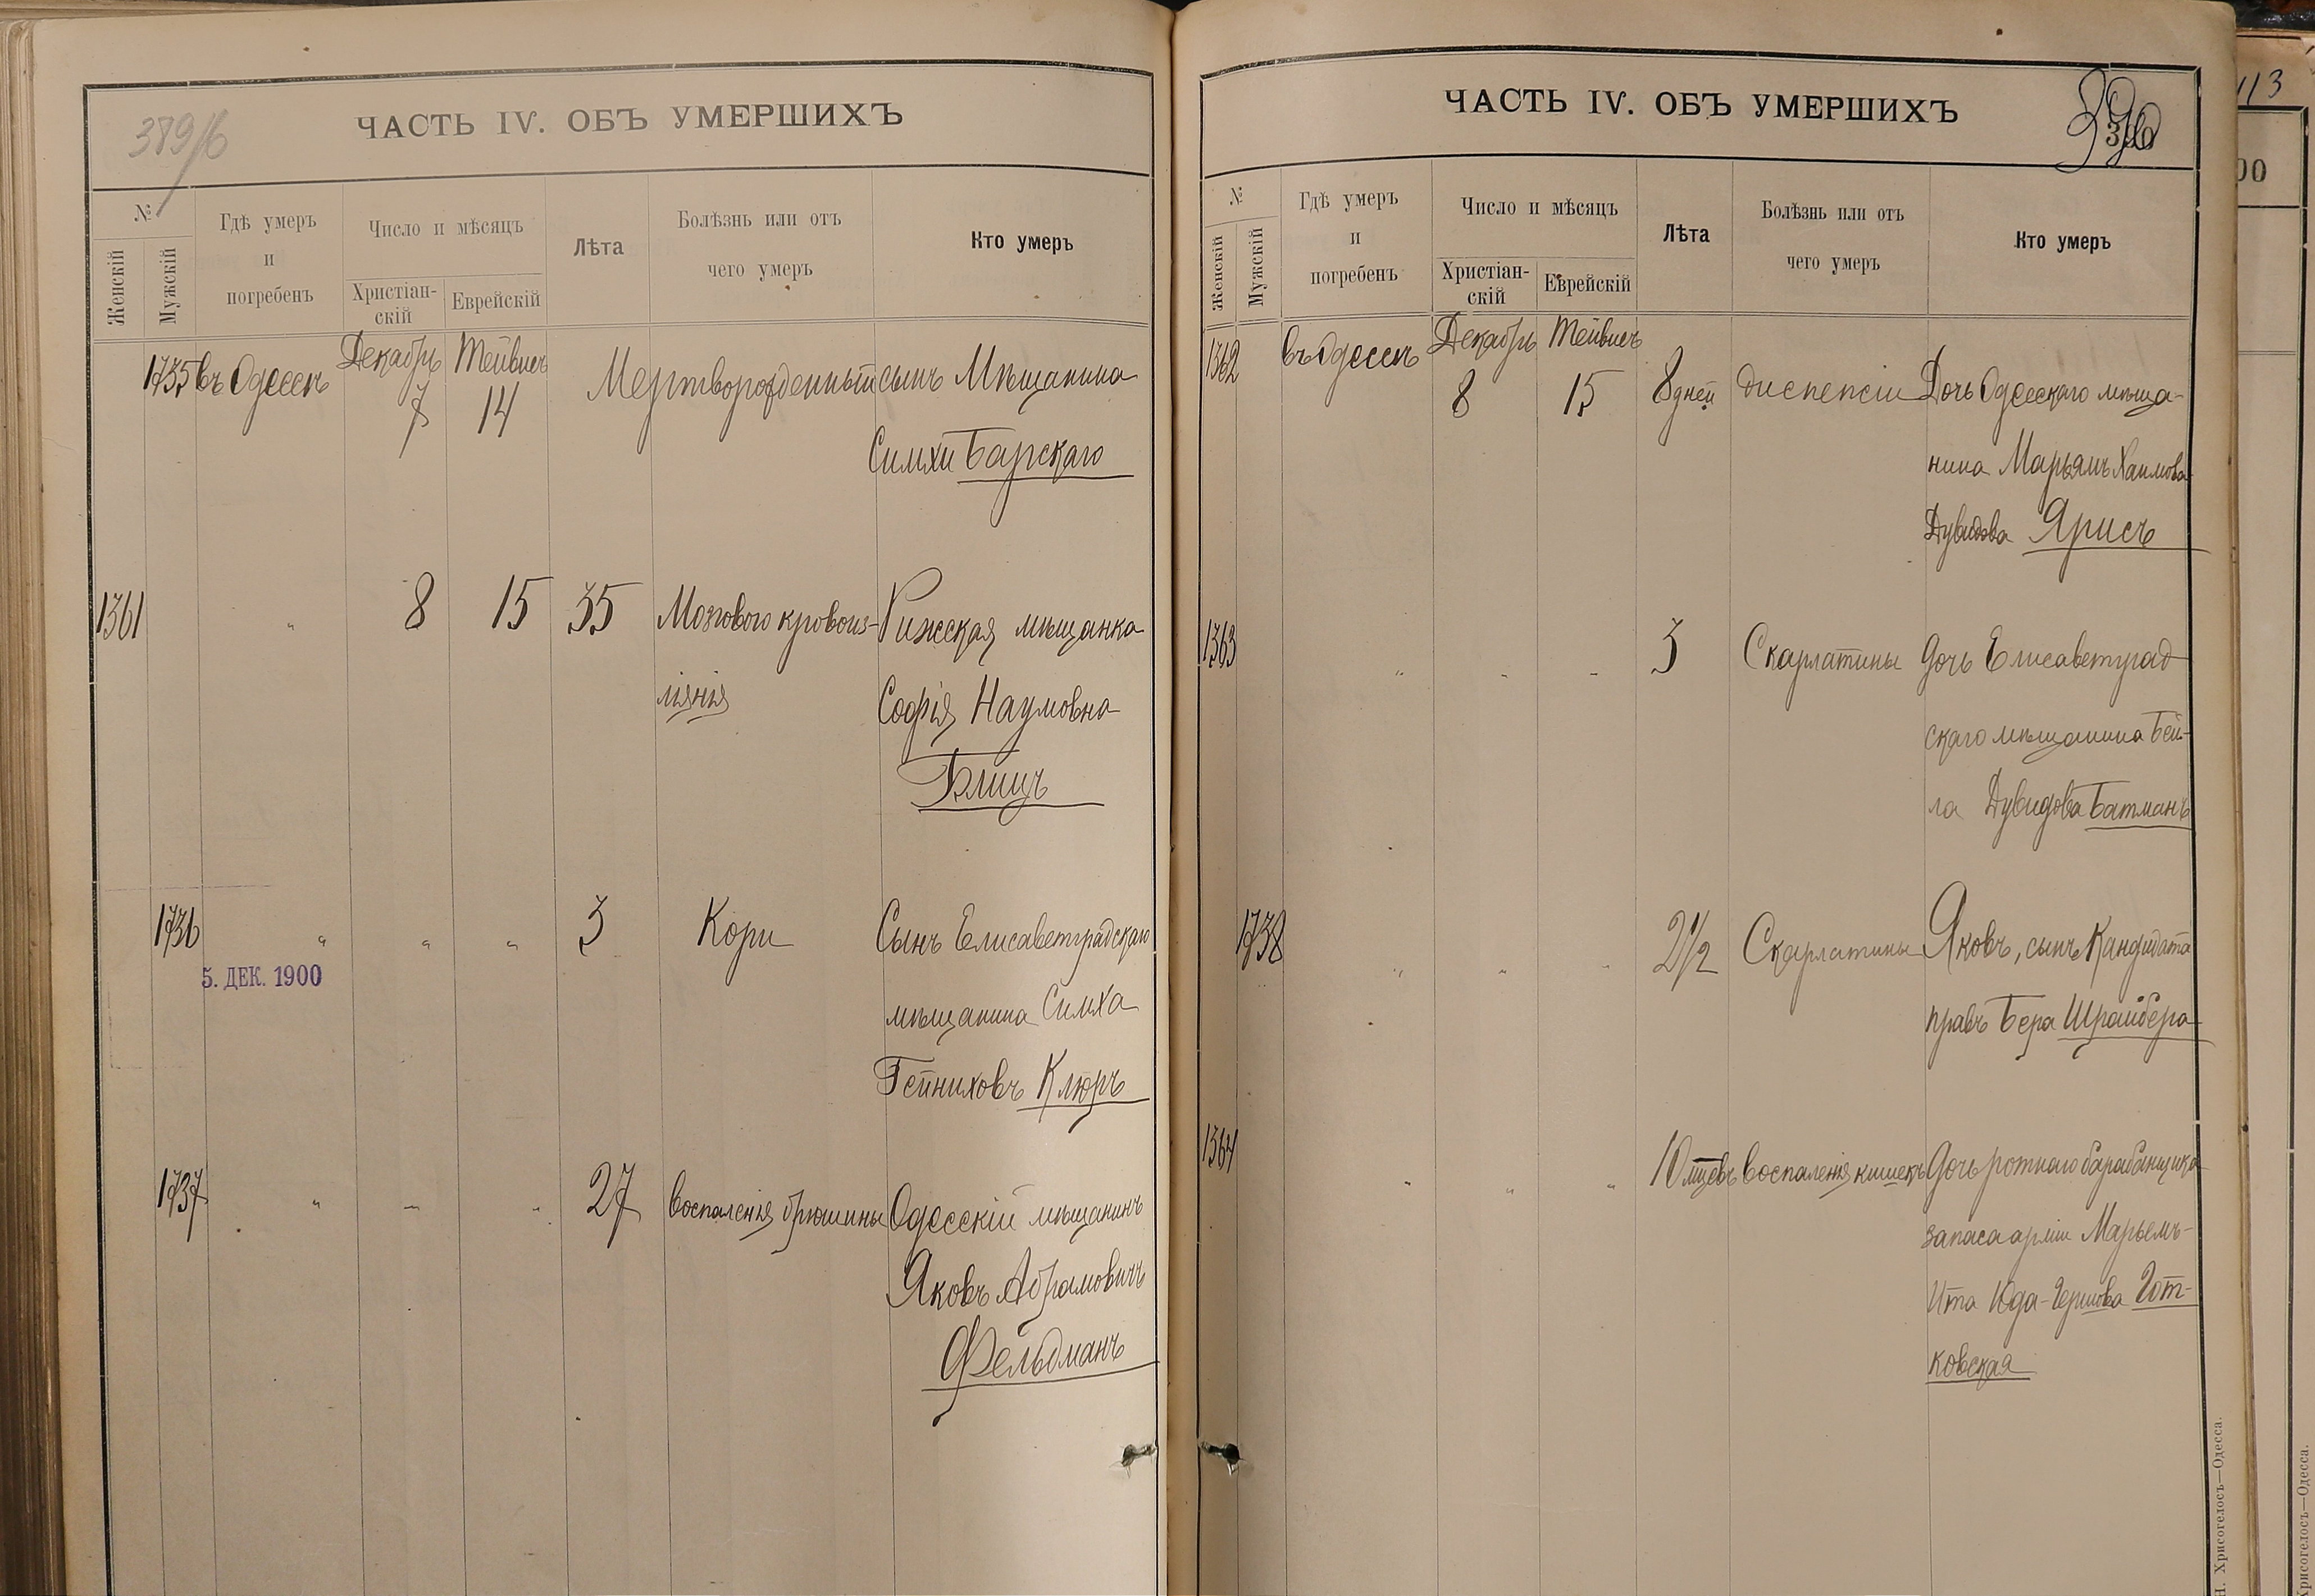 389/б
ЧАСТЬ IV. ОБЪ УМЕРШИХЪ
№
Женскій
Мужскій
Гдѣ умеръ
и
погребенъ
Число и мѣсяцъ
Христіан-
скій
Еврейскій
Лѣта
Болѣзнь или отъ
чего умеръ
Кто умеръ
Декабрь Тейвисъ
1735 въ Одессѣ 7 14 Мертворожденный сынъ Мѣщанина
Симхи Барскаго
1361 " 8 15 35 Мозгового кровоиз- Рижская мѣщанка
ліянія Софія Наумовна
Блицъ
1736 " " " 3 Кори Сынъ Елисаветградскаго
5. ДЕК. 1900
мѣщанина Симха
Гейниховъ Клюръ
1737 " " " 27 воспаленія брюшины Одесскій мѣщанинъ
Яковъ Абрамовичъ
Фельдманъ
ЧАСТЬ IV. ОБЪ УМЕРШИХЪ
390
№
Женскій
Мужскій
Гдѣ умеръ
и
погребенъ
Число и мѣсяцъ
Христіан-
скій
Еврейскій
Лѣта
Болѣзнь или отъ
чего умеръ
Кто умеръ
Декабрь Тейвисъ
1362 въ Одессѣ 8 15 8 дней диспепсіи Дочь Одесскаго мѣща-
нина Марьямъ Хаимова
Дувидова Ярисъ
1363 " " " 3 Скарлатины дочь Елисаветград
скаго мѣщанина Бей-
ла Дувидова Батманъ
1738 " " " 2 1/2 Скарлатины Яковъ, сынъ Кандидата
правъ Бера Шрайбера
1364 " " " 10 мѣсвъ воспаленія кишекъ Дочь ротнаго барабанщика
запаса арміи Марьемъ-
Ита Юда-Гершова Гот-
ковская
Н. Хрисогелосъ—Одесса.
113
00
Хрисогелосъ—Одесса.